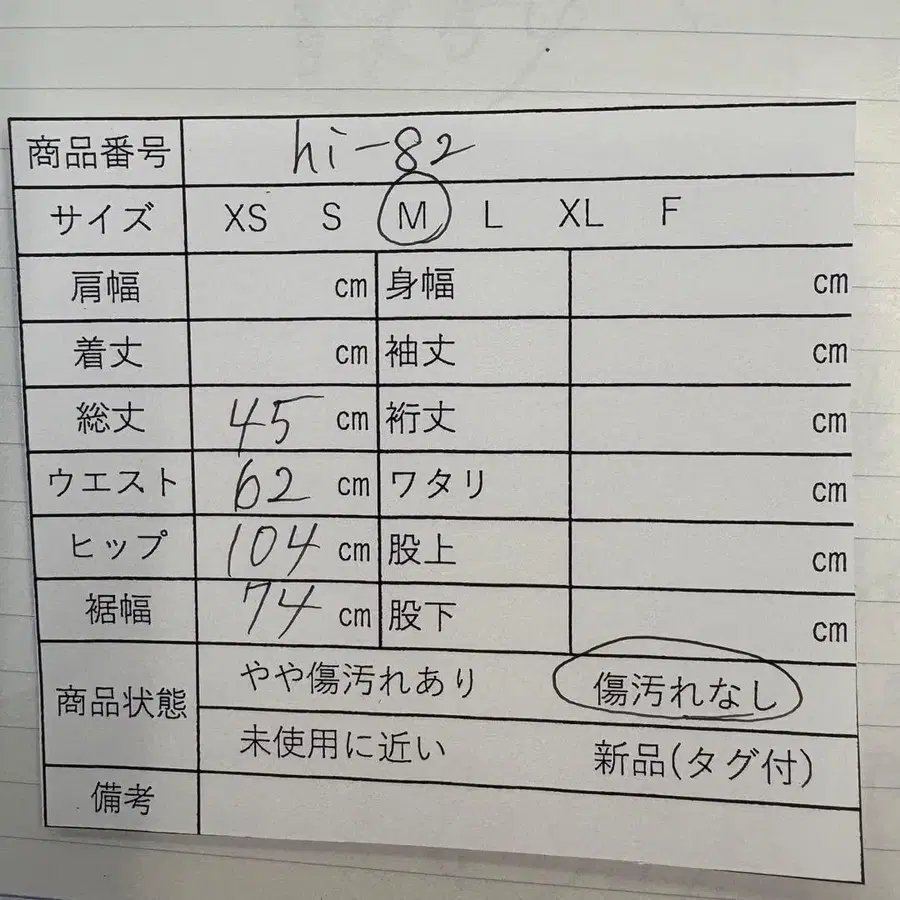 商品番号 hi-82
サイズ XS S M L XL F
肩幅 cm 身幅 cm
着丈 cm 袖丈 cm
総丈 45 cm 裄丈 cm
ウエスト 62 cm ワタリ cm
ヒップ 104 cm 股上 cm
裾幅 74 cm 股下 cm
商品状態 やや傷汚れあり 傷汚れなし
未使用に近い 新品(タグ付)
備考